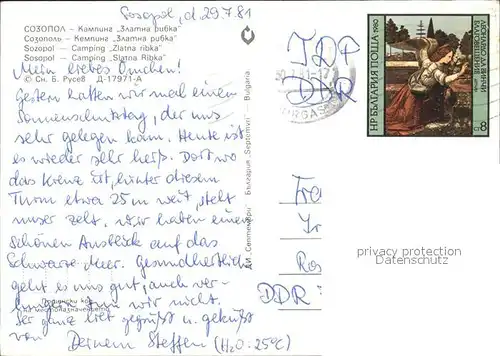 Sozopol, d. 29.7.81
СОЗОПОЛ – Кемпинг "Златна рибка"
Созополь – Кемпинг "Златна рибка"
Sozopol – Camping „Zlatna ribka"
Sosopol – Camping „Slatna Ribka"
© Сн. Б. Русев Д-17971-А
Mein liebes Omchen!
Gestern hatten wir mal einen
Sonnenschutztag, der uns
sehr gelegen kam. Heute ist
es wieder sehr heiß. Dort wo
das Kreuz ist, hinter diesem
Turm etwa 25 m weit, steht
unser Zelt. Wir haben einen
schönen Ausblick auf das
Schwarze Meer. Gesundheitlich
geht es uns gut, auch ver-
hungern tun wir nicht.
Sei ganz lieb gegrüßt u. geküßt
von Deinem Steffen (H₂O: 25°C)
Пощенски код
на местоназначението
ДИ „Септември" България „Septemvri" Bulgaria
TDP
DDR
БУРГАС
Fra
Ros
DDR
НР БЪЛГАРИЯ ПОЩА 1980
ЛЕОНАРДО ДА ВИНЧИ
БЛАГОВЕЩЕНИЕ
8
privacy protection
Datenschutz